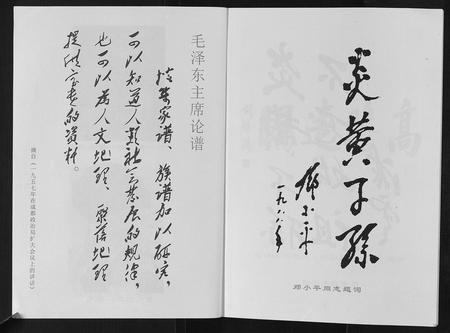 炎黄子孙
邓小平
一九八六年
邓小平同志题词
毛泽东主席论谱
搜集家谱、族谱加以研究，
可以知道人类社会发展的规律，
也可以为人文地理、聚落地理
提供宝贵的资料。
摘自《一九五七年在成都政治局扩大会议上的讲话》